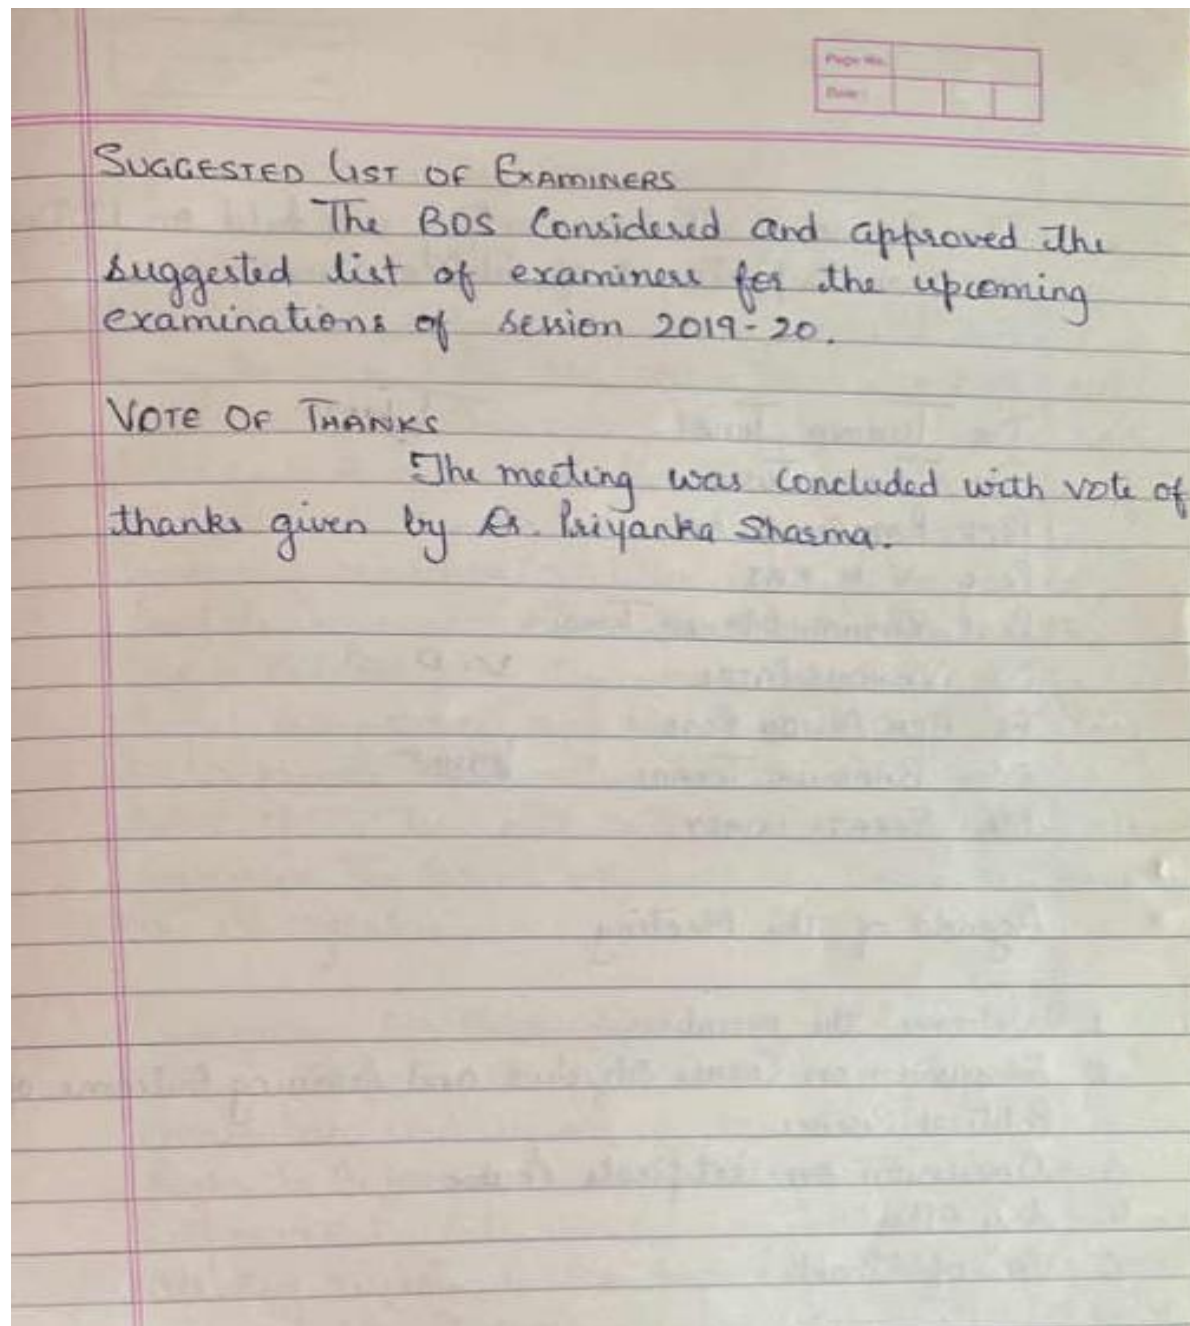 Page No.
Date:
SUGGESTED LIST OF EXAMINERS
The BOS Considered and approved the
suggested list of examiners for the upcoming
examinations of session 2019-20.
VOTE OF THANKS
The meeting was concluded with vote of
thanks given by Er. Priyanka Sharma.